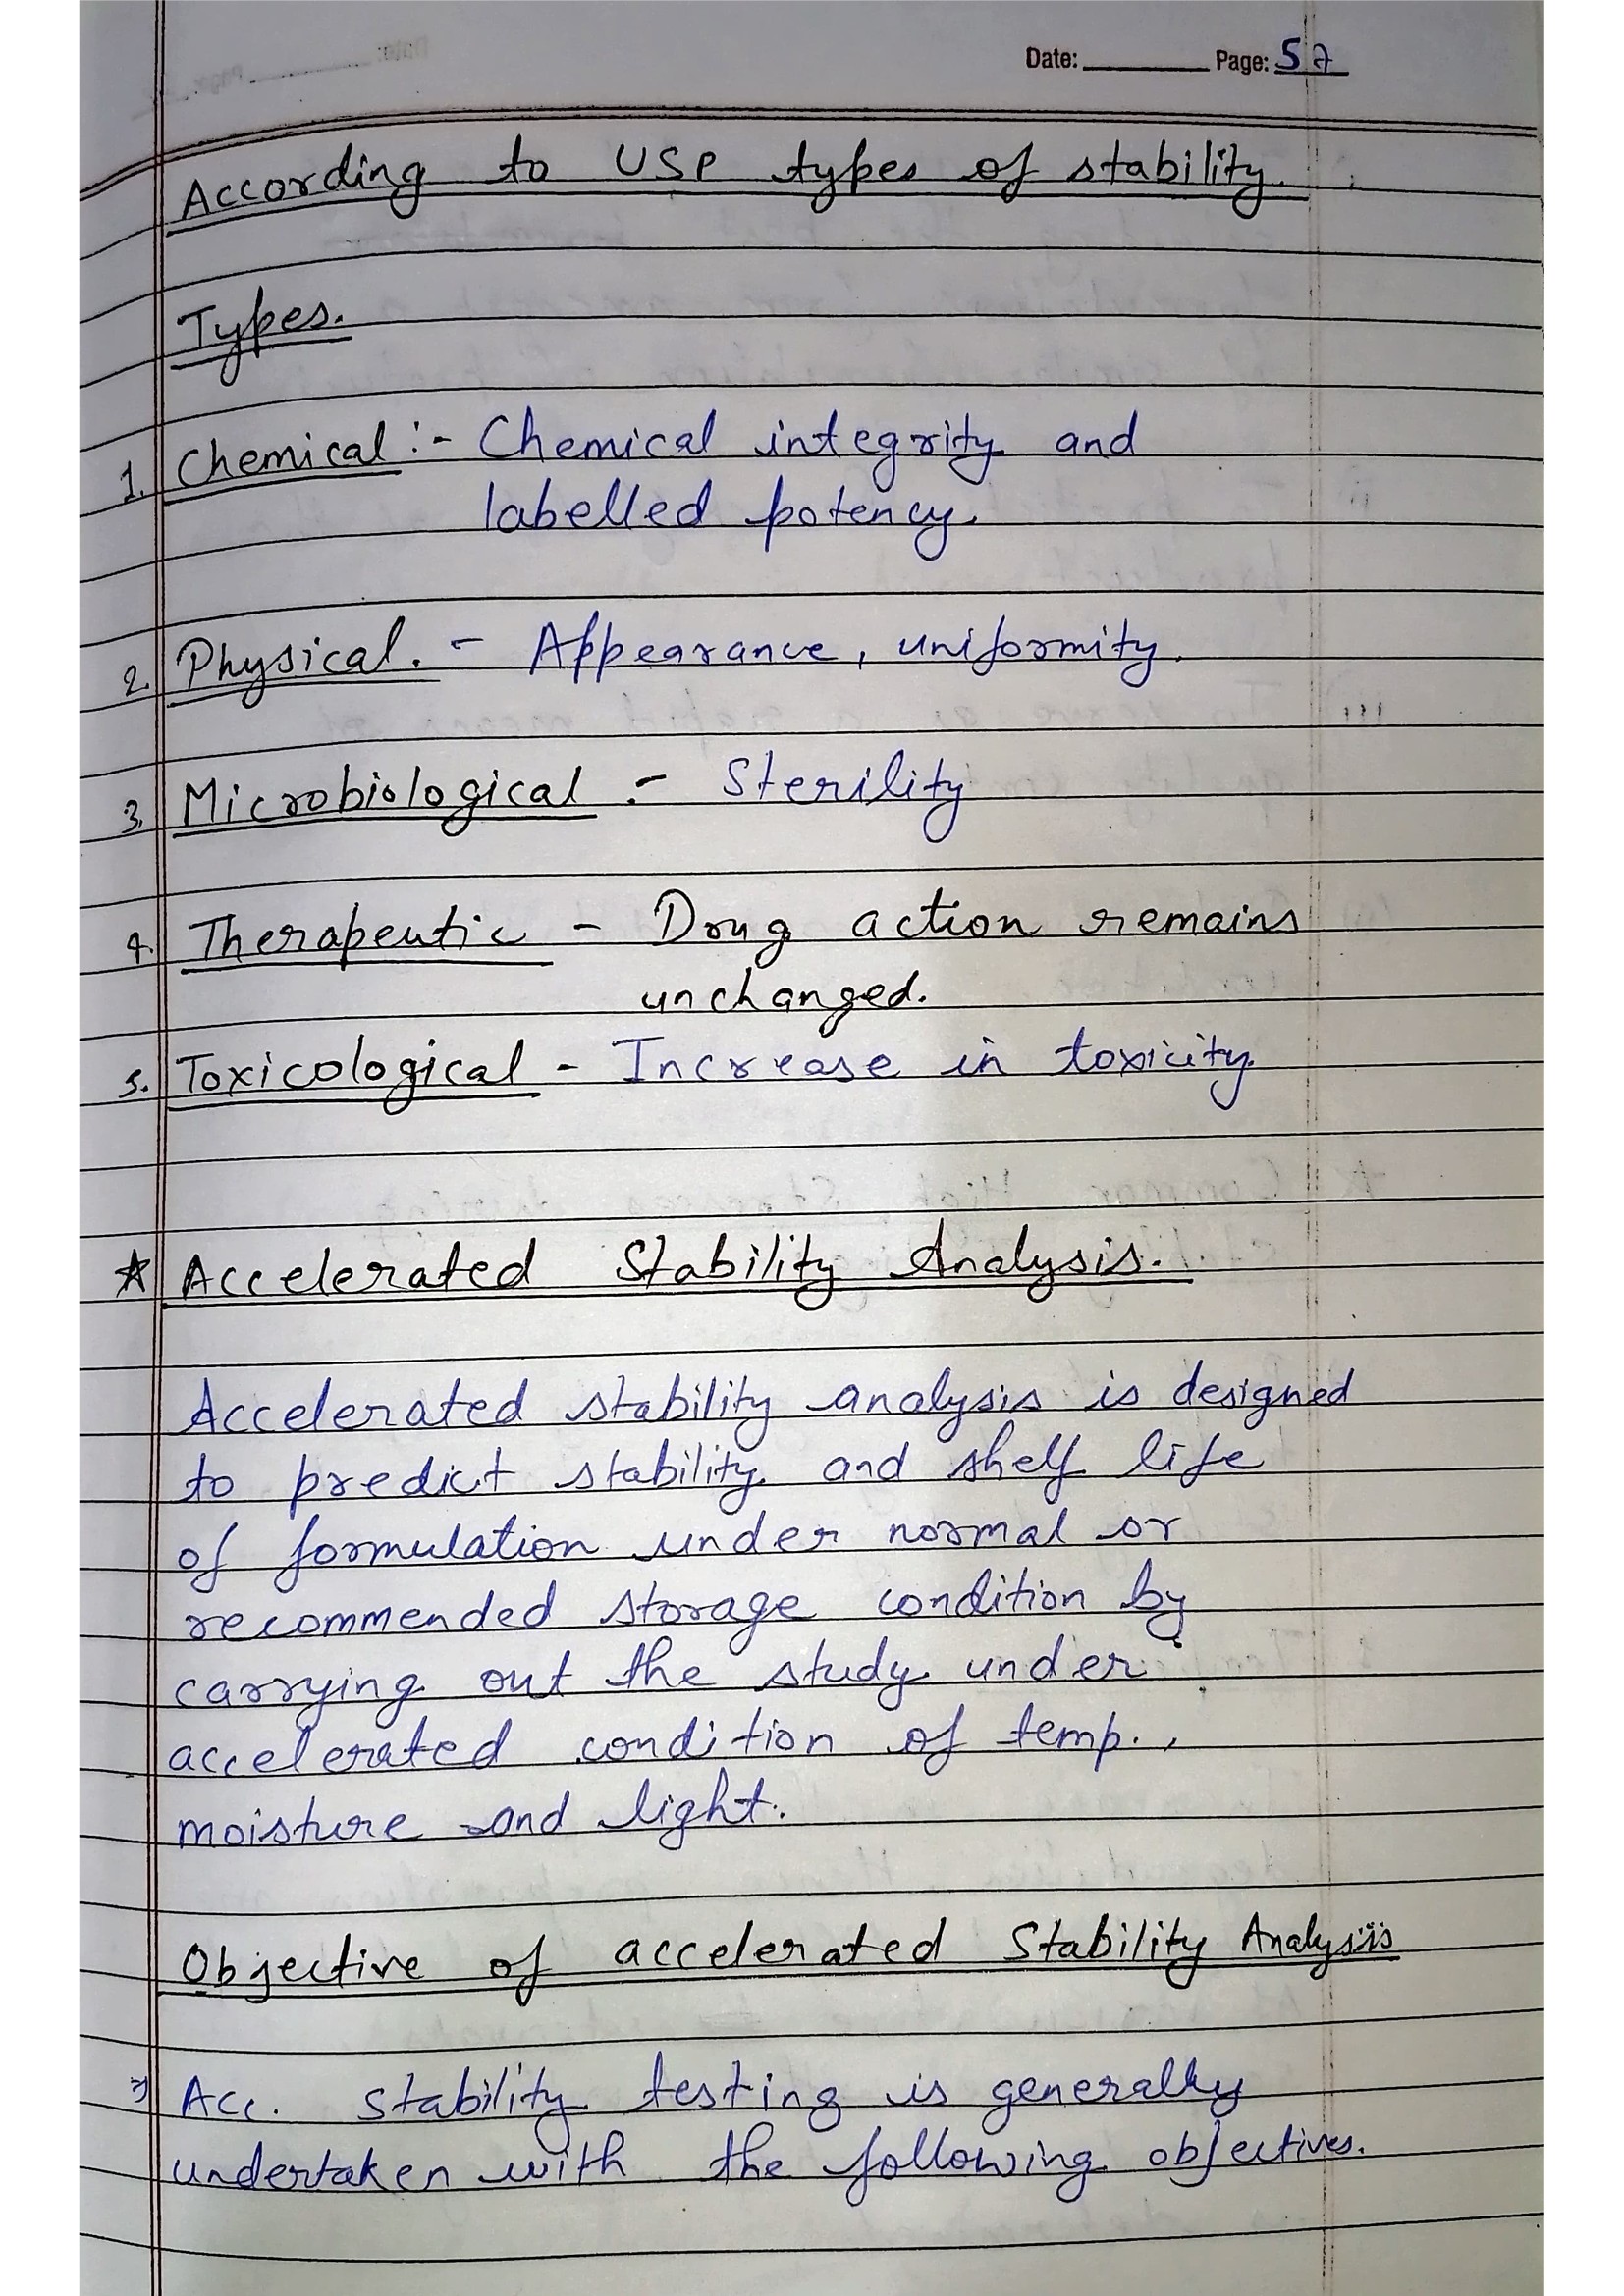 Date: Page: 57
According to USP types of stability.
Types.
1. Chemical :- Chemical integrity and
labelled potency.
2. Physical. - Appearance, uniformity.
3. Microbiological :- Sterility
4. Therapeutic - Drug action remains
unchanged.
5. Toxicological - Increase in toxicity.
☆ Accelerated Stability Analysis.
Accelerated stability analysis is designed
to predict stability and shelf life
of formulation under normal or
recommended storage condition by
carrying out the study under
accelerated condition of temp.,
moisture and light.
Objective of accelerated Stability Analysis
⇒ Acc. stability testing is generally
undertaken with the following objectives.